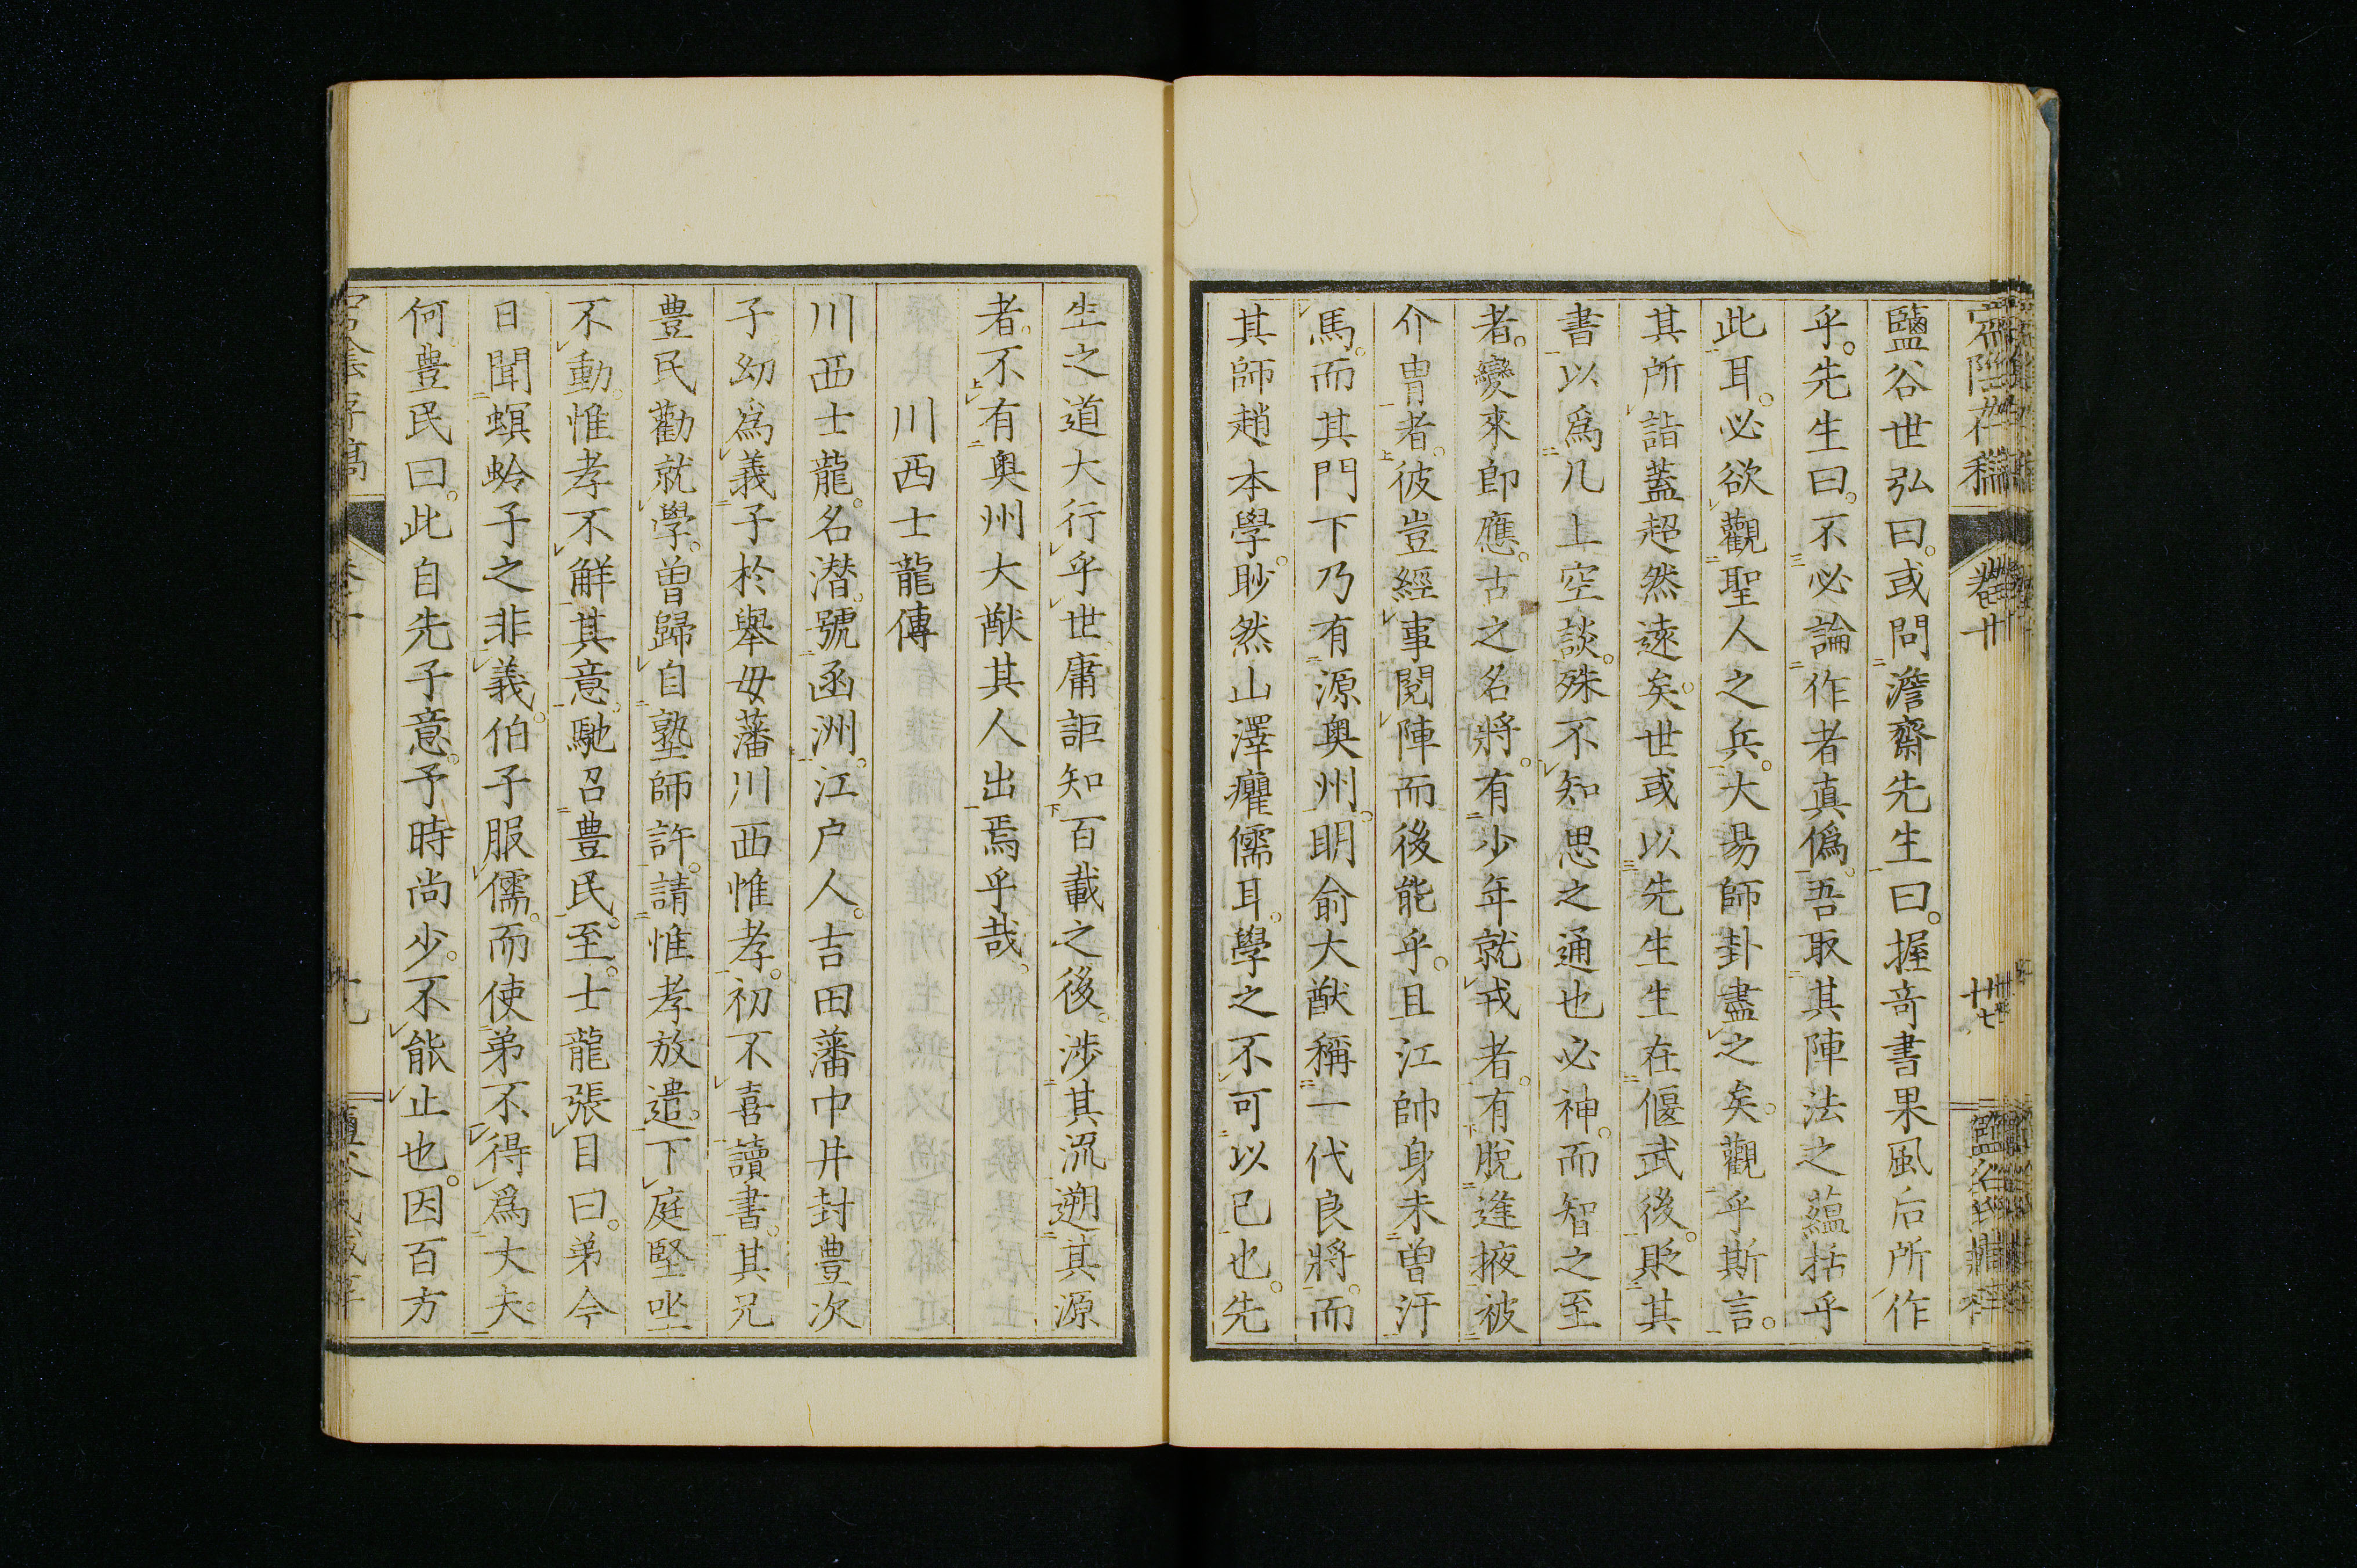 鹽谷世弘曰。或問澹齋先生曰。握奇書果風后所作
乎。先生曰。不必論作者真僞。吾取其陣法之蘊括乎
此耳。必欲觀聖人之兵。大易師卦盡之矣。觀乎斯言。
其所詣蓋超然遠矣。世或以先生生在偃武後。貶其
書以爲几上空談。殊不知思之通也必神。而智之至
者。變來卽應。古之名將。有少年就戎者。有脫逢掖被
介冑者。彼豈經事閱陣而後能乎。且江帥身未曽汗
馬。而其門下乃有源奧州。明俞大猷稱一代良將。而
其師趙本學。眇然山澤癯儒耳。學之不可以已也。先
生之道大行乎世。庸詎知百載之後。涉其流遡其源
者。不有奧州大猷其人出焉乎哉。
川西士龍傳
川西士龍。名潛。號函洲。江户人。吉田藩中井封豊次
子幼爲義子於舉母藩川西惟孝。初不喜讀書。其兄
豊民勸就學。曽歸自塾師許。請惟孝放遣。下庭堅坐
不動。惟孝不解其意。馳召豊民。至。士龍張目曰。弟今
日聞螟蛉子之非義。伯子服儒。而使弟不得爲大夫。
何。豊民曰。此自先子意。予時尚少。不能止也。因百方